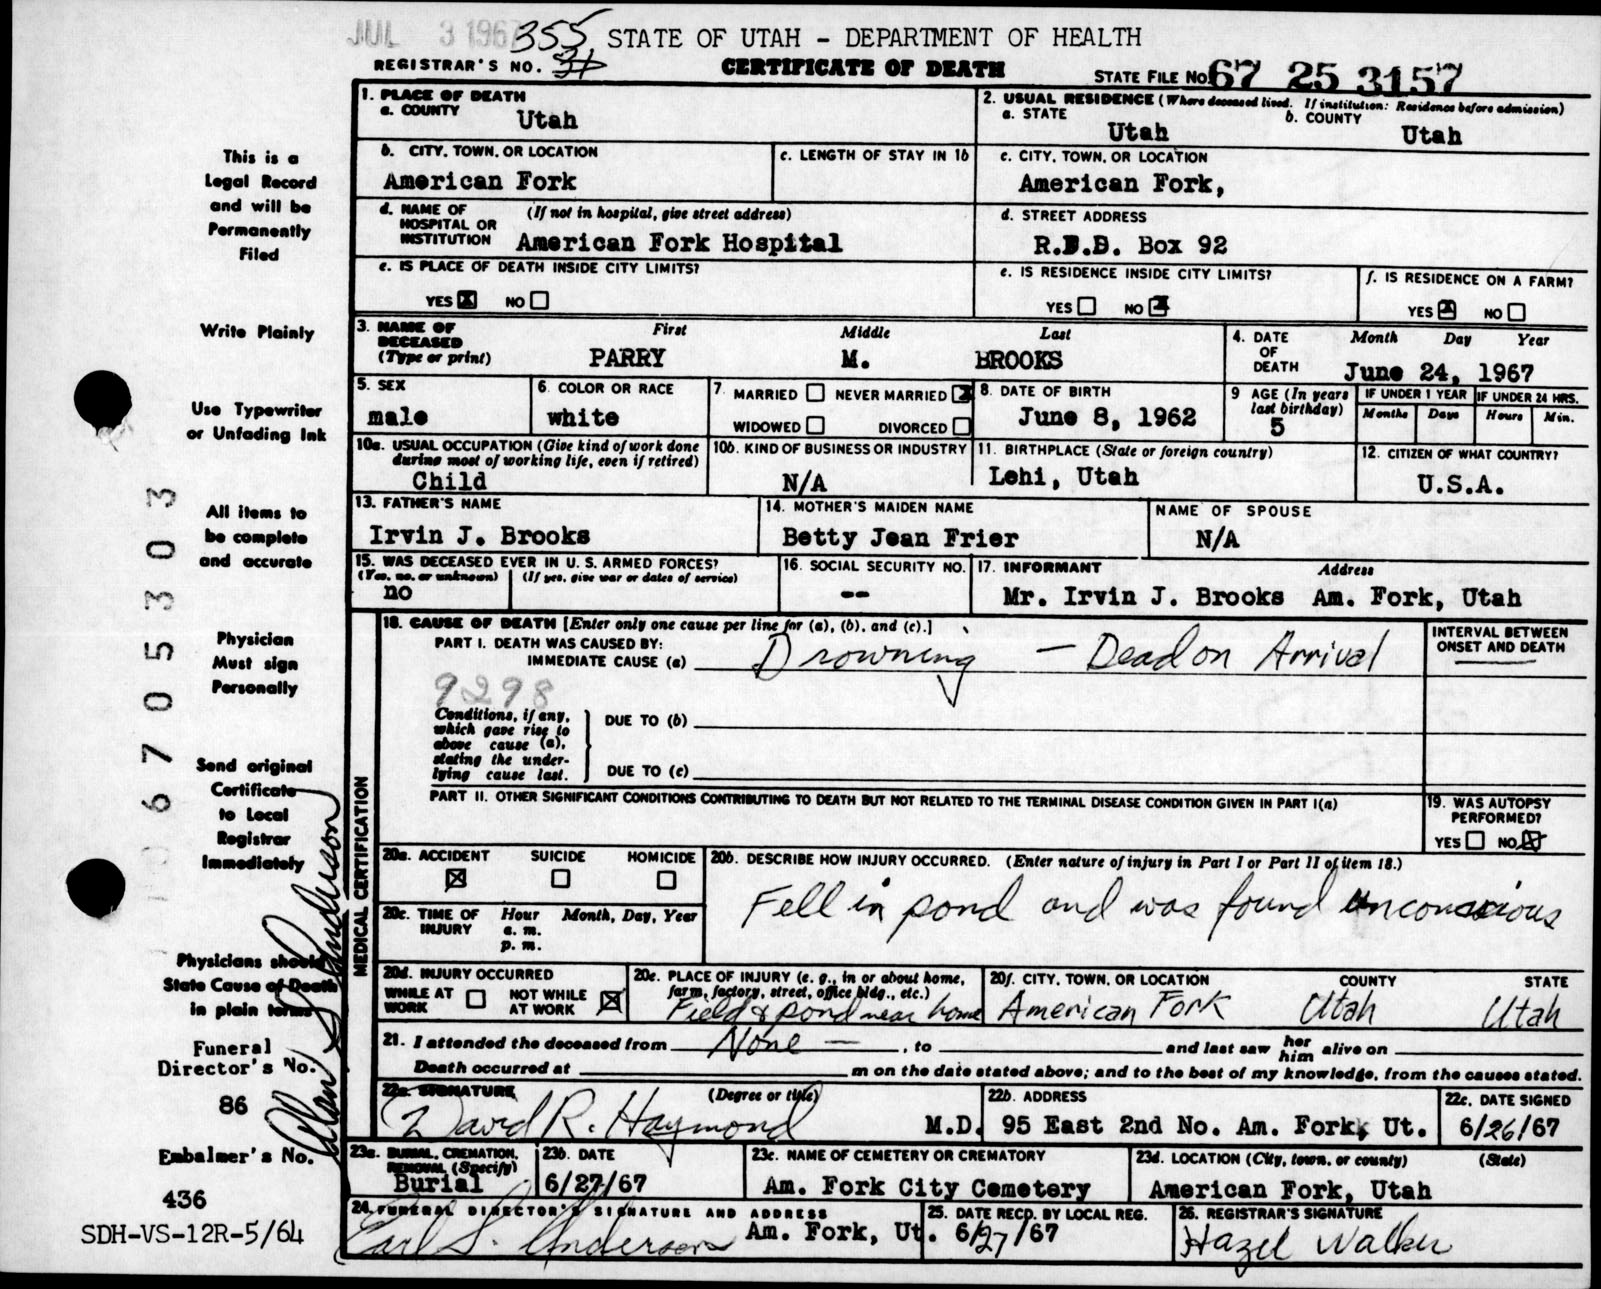 JUL 3 1967 355 STATE OF UTAH - DEPARTMENT OF HEALTH
REGISTRAR'S NO. CERTIFICATE OF DEATH STATE FILE NO. 67 25 3157
1. PLACE OF DEATH
a. COUNTY Utah
2. USUAL RESIDENCE (Where deceased lived. If institution: Residence before admission)
a. STATE Utah b. COUNTY Utah
b. CITY, TOWN, OR LOCATION American Fork
c. LENGTH OF STAY IN 1b
c. CITY, TOWN, OR LOCATION
American Fork,
d. NAME OF HOSPITAL OR INSTITUTION (If not in hospital, give street address)
American Fork Hospital
d. STREET ADDRESS
R.F.D. Box 92
e. IS PLACE OF DEATH INSIDE CITY LIMITS?
YES ☒ NO ☐
e. IS RESIDENCE INSIDE CITY LIMITS?
YES ☐ NO ☒
f. IS RESIDENCE ON A FARM?
YES ☒ NO ☐
3. NAME OF DECEASED (Type or print) First Middle Last
PARRY M. BROOKS
4. DATE OF DEATH Month Day Year
June 24, 1967
5. SEX
male
6. COLOR OR RACE
white
7. MARRIED ☐ NEVER MARRIED ☒
WIDOWED ☐ DIVORCED ☐
8. DATE OF BIRTH
June 8, 1962
9 AGE (In years last birthday)
5
IF UNDER 1 YEAR IF UNDER 24 HRS.
Months Days Hours Min.
10a. USUAL OCCUPATION (Give kind of work done during most of working life, even if retired)
Child
10b. KIND OF BUSINESS OR INDUSTRY
N/A
11. BIRTHPLACE (State or foreign country)
Lehi, Utah
12. CITIZEN OF WHAT COUNTRY?
U.S.A.
13. FATHER'S NAME
Irvin J. Brooks
14. MOTHER'S MAIDEN NAME
Betty Jean Frier
NAME OF SPOUSE
N/A
15. WAS DECEASED EVER IN U. S. ARMED FORCES?
(Yes, no, or unknown) (If yes, give war or dates of service)
no
16. SOCIAL SECURITY NO.
--
17. INFORMANT Address
Mr. Irvin J. Brooks Am. Fork, Utah
MEDICAL CERTIFICATION
18. CAUSE OF DEATH [Enter only one cause per line for (a), (b), and (c).]
PART I. DEATH WAS CAUSED BY:
IMMEDIATE CAUSE (a) Drowning - Dead on Arrival
INTERVAL BETWEEN ONSET AND DEATH
9298
Conditions, if any, which gave rise to above cause (a), stating the underlying cause last.
DUE TO (b)
DUE TO (c)
PART II. OTHER SIGNIFICANT CONDITIONS CONTRIBUTING TO DEATH BUT NOT RELATED TO THE TERMINAL DISEASE CONDITION GIVEN IN PART I(a)
19. WAS AUTOPSY PERFORMED?
YES ☐ NO ☒
20a. ACCIDENT SUICIDE HOMICIDE
☒ ☐ ☐
20b. DESCRIBE HOW INJURY OCCURRED. (Enter nature of injury in Part I or Part II of item 18.)
Fell in pond and was found unconscious
20c. TIME OF INJURY Hour Month, Day, Year
a. m.
p. m.
20d. INJURY OCCURRED
WHILE AT WORK ☐ NOT WHILE AT WORK ☒
20e. PLACE OF INJURY (e. g., in or about home, farm, factory, street, office bldg., etc.)
Field & pond near home
20f. CITY, TOWN, OR LOCATION COUNTY STATE
American Fork Utah Utah
21. I attended the deceased from None - , to and last saw her him alive on
Death occurred at m on the date stated above; and to the best of my knowledge, from the causes stated.
22a. SIGNATURE (Degree or title)
David R. Haymond M.D.
22b. ADDRESS
95 East 2nd No. Am. Fork, Ut.
22c. DATE SIGNED
6/26/67
23a. BURIAL, CREMATION, REMOVAL (Specify)
Burial
23b. DATE
6/27/67
23c. NAME OF CEMETERY OR CREMATORY
Am. Fork City Cemetery
23d. LOCATION (City, town, or county) (State)
American Fork, Utah
24. FUNERAL DIRECTOR'S SIGNATURE AND ADDRESS
Earl S. Anderson Am. Fork, Ut.
25. DATE RECD. BY LOCAL REG.
6/27/67
26. REGISTRAR'S SIGNATURE
Hazel Walker
This is a
Legal Record
and will be
Permanently
Filed
Write Plainly
Use Typewriter
or Unfading Ink
All items to
be complete
and accurate
Physician
Must sign
Personally
Send original
Certificate
to Local
Registrar
Immediately
Physicians should
State Cause of Death
in plain terms
Funeral
Director's No.
86
Embalmer's No.
436
SDH-VS-12R-5/64
6705303